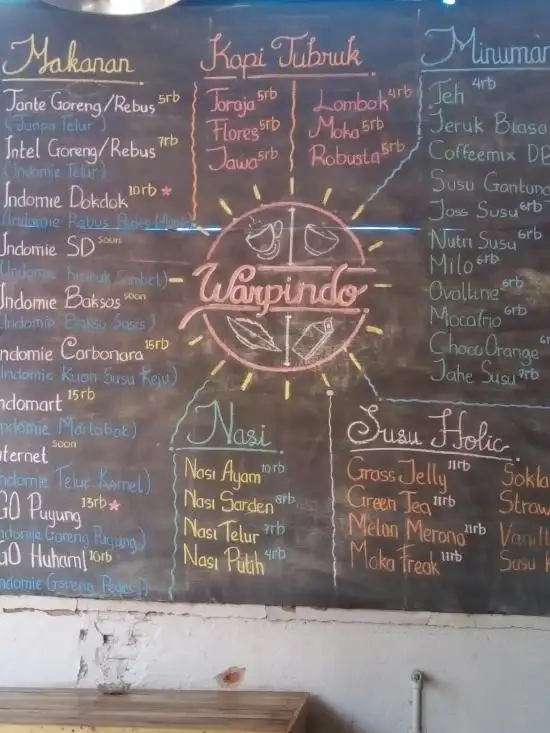 Makanan
Tante Goreng/Rebus 5rb
(Tanpa Telur)
Intel Goreng/Rebus 7rb
(Indomie Telur)
Indomie Dokdok 10rb
(Indomie Rebus Pedes
Indomie SD soon
Indomie Sambel)
Indomie Baksos soon
Indomie Bakso Sosis)
ndomie Carbonara 15rb
Indomie Kuah Susu Keju)
ndomart 15rb
ndomie Martabak)
nternet soon
ndomie Telur Kornet)
GO Puyung 13rb
ndomie Goreng Puyung)
GO Huham! 10rb
ndomie Goreng Pedes!)
Kopi Tubruk
Toraja 5rb
Flores 5rb
Jawa 5rb
Lombok 4rb
Moka 5rb
Robusta 5rb
Warpindo
Nasi
Nasi Ayam 10rb
Nasi Sarden 8rb
Nasi Telur 7rb
Nasi Putih 4rb
Minuman
Teh 4rb
Jeruk Biasa
Coffeemix DB
Susu Gantung
Joss Susu 6rb
Nutri Susu 6rb
Milo 6rb
Ovaltine 6rb
Mocafrio 6rb
Choco Orange 6r
Jahe Susu 7rb
Susu Holic
Grass Jelly 11rb
Green Tea 11rb
Melon Merona 11rb
Moka Freak 11rb
Sokla
Straw
Vanill
Susu